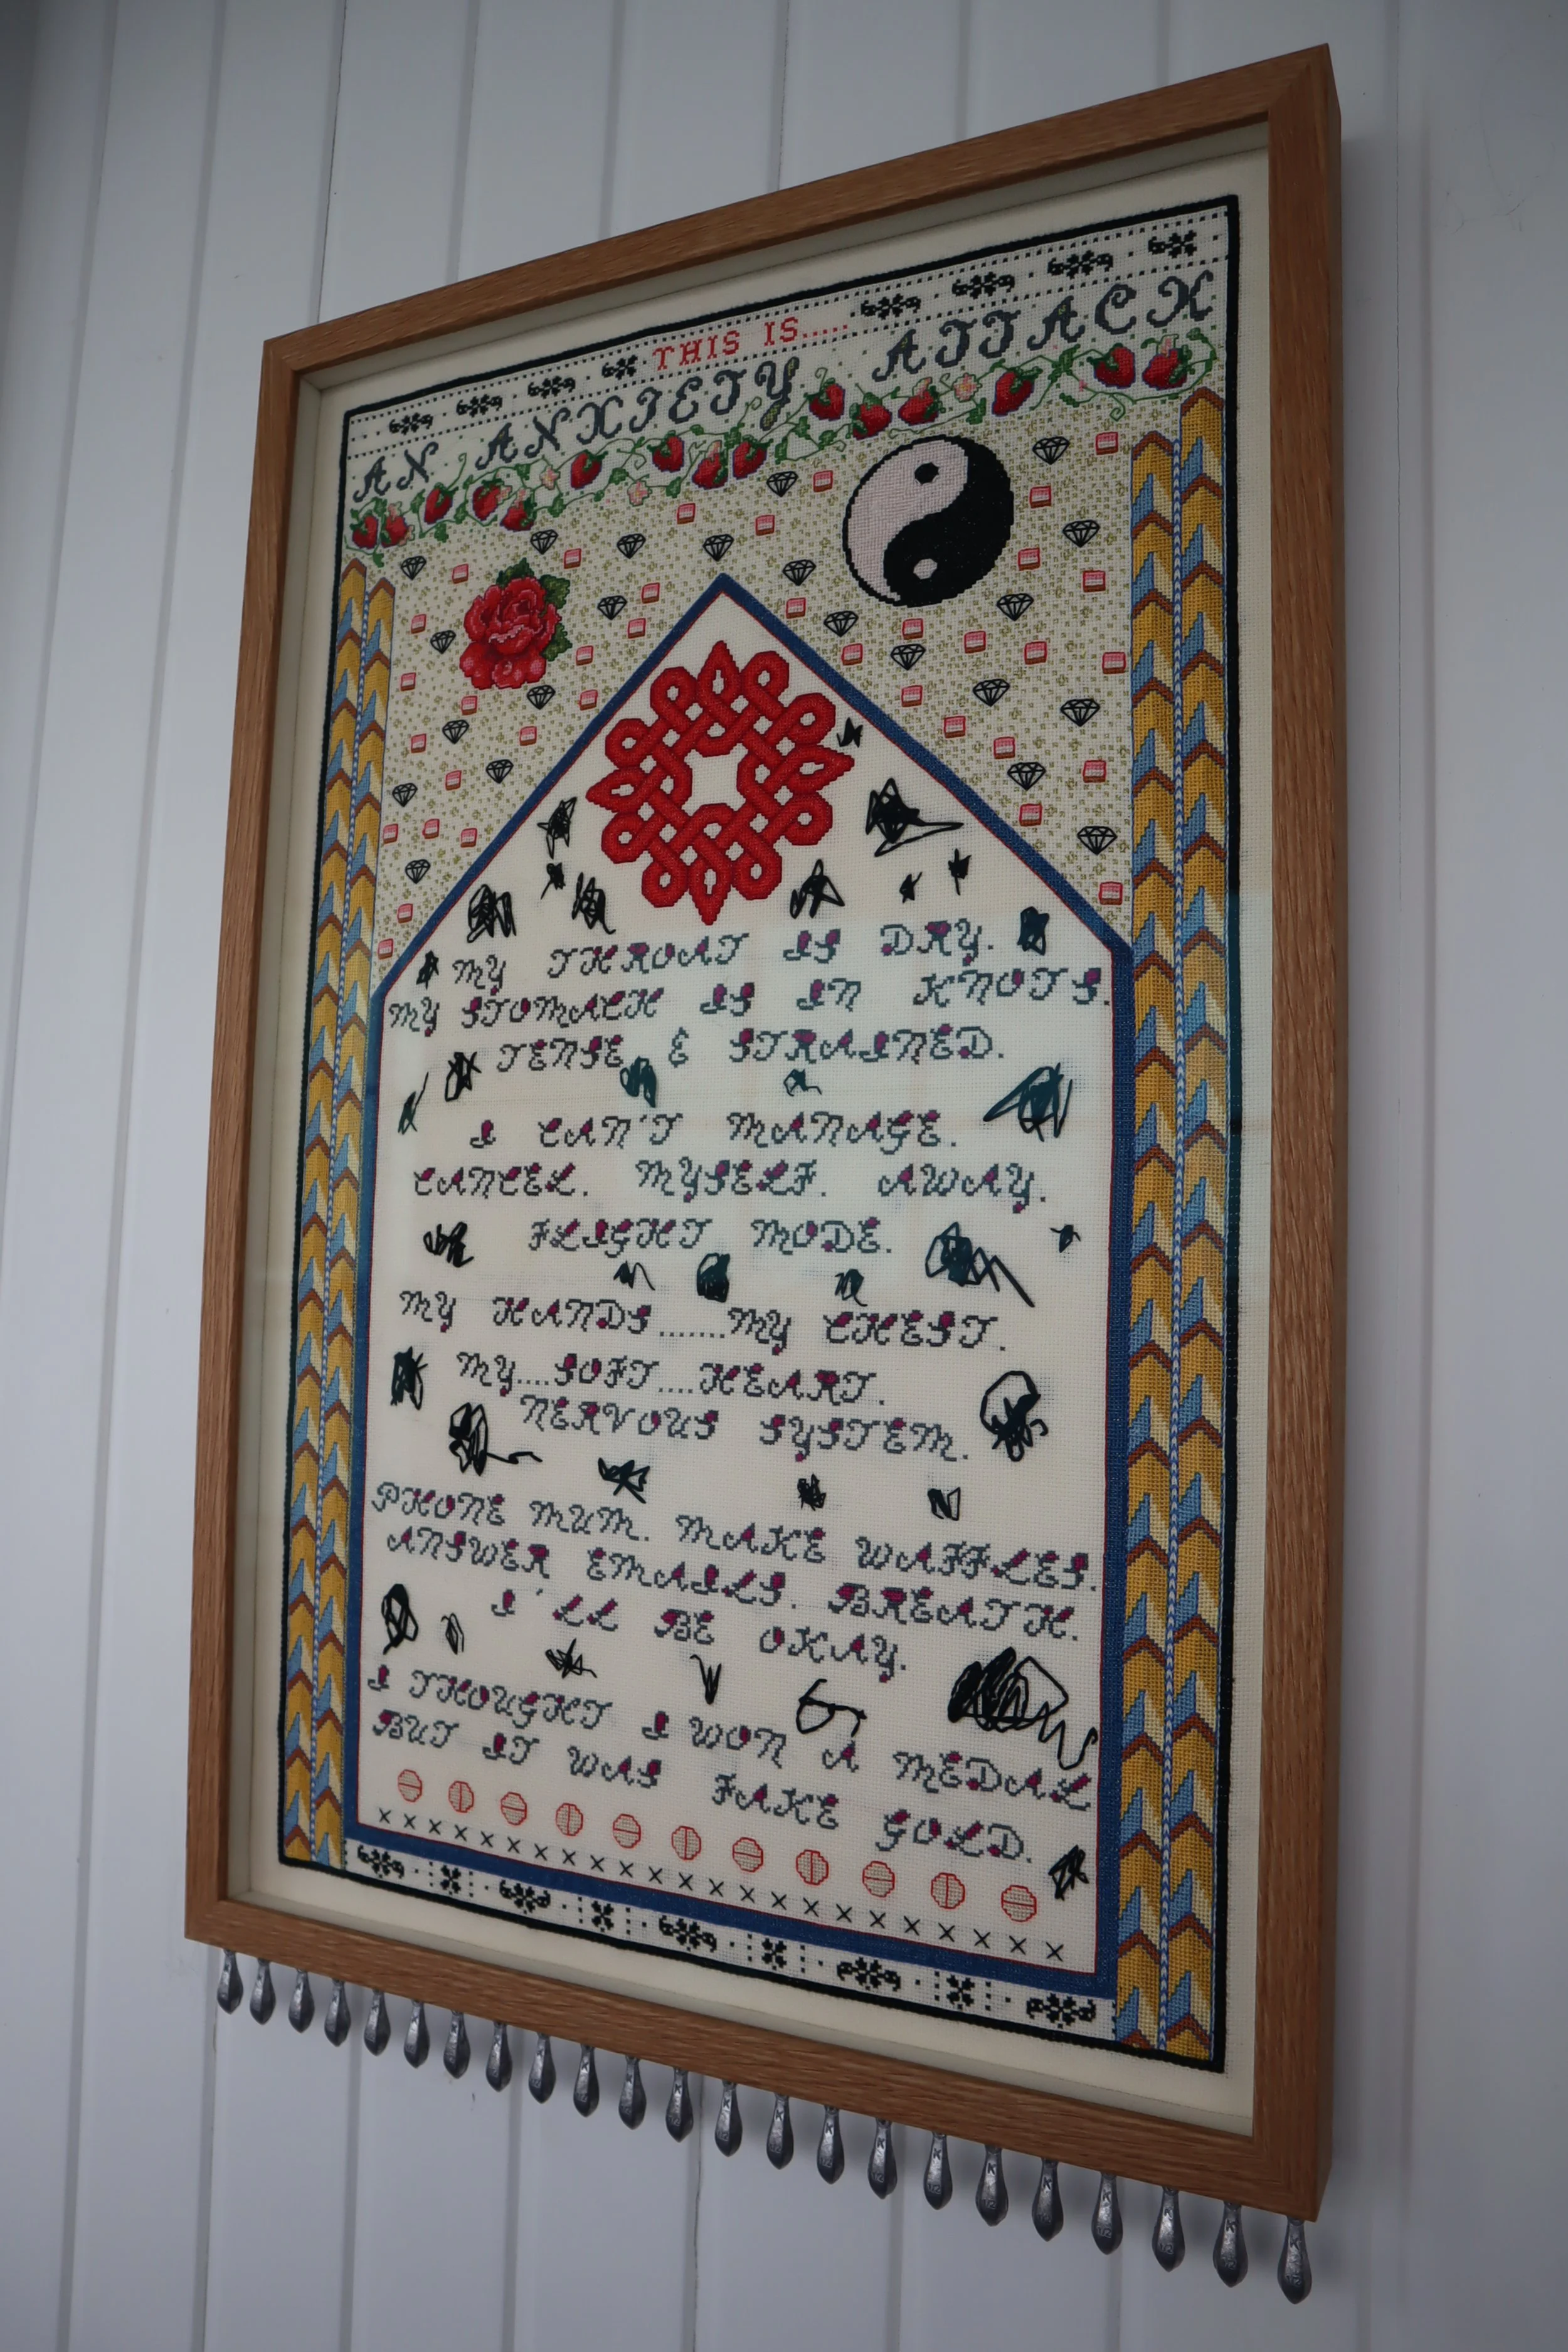 THIS IS.....
AN ANXIETY ATTACK
MY THROAT IS DRY.
MY STOMACH IS IN KNOTS.
TENSE & STRAINED.
I CAN'T MANAGE.
CANCEL. MYSELF. AWAY.
FLIGHT MODE.
MY HANDS.......MY CHEST.
MY....SOFT....HEART.
NERVOUS SYSTEM.
PHONE MUM. MAKE WAFFLES.
ANSWER EMAILS. BREATH.
I'LL BE OKAY.
I THOUGHT I WON A MEDAL
BUT IT WAS FAKE GOLD.